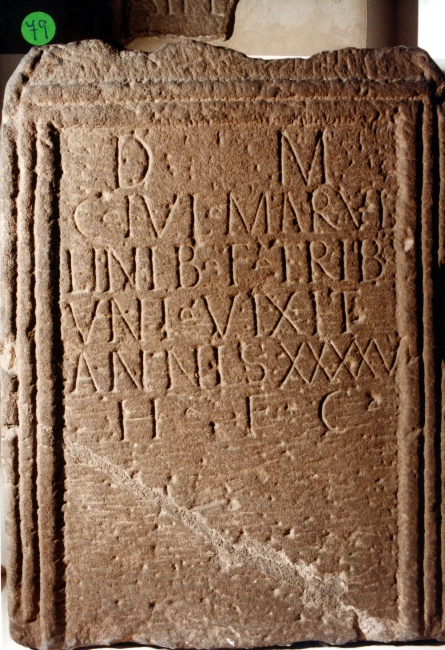 49
D M
C · IVI · MARVL
LINI · B · F · TRIB
VNI · VIXIT
ANNIS XXXXV
H · F · C